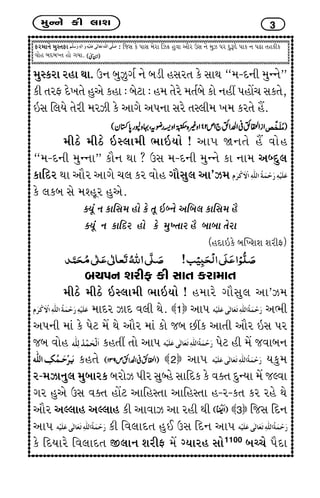 મુન્ને કી લાશ 3
ફરમાને મુસ્તફા صلى الله تعالى عليه واله وسلم : જિસ કે પાસ મેરા ઝિક્ર હુવા ઔર ઉસ ને મુઝ પર દુરૂદે પાક ન પઢા તહકીક
વોહ બદબખ્ત હો ગયા.
મુસ્કરા રહા થા. ઉન બુઝુર્ગ ને બડી હસરત કે સાથ “મ-દની મુન્ને”
કી તરફ દેખતે હુએ કહા : બેટા : હમ તેરે મર્તબે કો નહીં પહોંચ સકતે,
ઇસ લિયે તેરી મરઝી કે આગે અપના સરે તસ્લીમ ખમ કરતે હેં.
મીઠે મીઠે ઇસ્લામી ભાઇયો ! આપ જાનતે હેં વોહ
“મ-દની મુન્ના” કૌન થા ? ઉસ મ-દની મુન્ને કા નામ અબ્દુલ
કાદિર થા ઔર આગે ચલ કર વોહ ગૌસુલ આ’ઝમ عَلَيْهِ رَحْمَةُ اللهِ الْاَكْرَم
કે લકબ સે મશ્હૂર હુએ.
ક્યૂં ન કાસિમ હો કે તૂ ઇબ્ને અબિલ કાસિમ હૈ
ક્યૂં ન કાદિર હો કે મુખ્તાર હૈ બાબા તેરા
(હદાઇકે બખ્શિશ શરીફ)
صَلُّوْا عَلَى الْحَبِيْب! صَلَّى اللهُ تَعَالٰى عَلٰى مُحَمَّد
બચપન શરીફ કી સાત કરામાત
મીઠે મીઠે ઇસ્લામી ભાઇયો ! હમારે ગૌસુલ આ’ઝમ
عَلَيْهِ رَحْمَةُ اللهِ الْاَكْرَم માદર ઝાદ વલી થે. ﴾1﴿ આપ رَحْمَةُ اللهِ تَعَالٰى عَلَيْه અભી
અપની માં કે પેટ મેં થે ઔર માં કો જબ છીંક આતી ઔર ઇસ પર
જબ વોહ اَلْحَمْدُ لِلّٰه કહતીં તો આપ رَحْمَةُ اللهِ تَعَالٰى عَلَيْه પેટ હી મેં જવાબન
يَرْحَمُكِ الله કહતે ﴾2﴿ આપ رَحْمَةُ اللهِ تَعَالٰى عَلَيْه યકુમ
ર-મઝાનુલ મુબારક બરોઝ પીર સુબ્હે સાદિક કે વક્ત દુન્યા મેં જલ્વા
ગર હુએ ઉસ વક્ત હોંટ આહિસ્તા આહિસ્તા હ-ર-કત કર રહે થે
ઔર અલ્લાહ અલ્લાહ કી આવાઝ આ રહી થી ﴾3﴿ જિસ દિન
આપ رَحْمَةُ اللهِ تَعَالٰى عَلَيْه કી વિલાદત હુઈ ઉસ દિન આપ رَحْمَةُ اللهِ تَعَالٰى عَلَيْه
કે દિયારે વિલાદત જીલાન શરીફ મેં ગ્યારહ સો 1100 બચ્ચે પૈદા